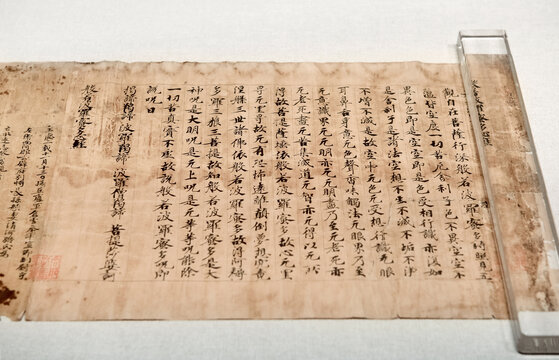 觀自在菩薩行深般若波羅蜜多時照見五
蘊皆空度一切苦厄舍利子色不異空空不
異色色即是空空即是色受想行識亦復如
是舍利子是諸法空想不生不滅不垢不淨
不增不減是故空中无色无受想行識无眼
耳鼻舌身意无色聲香味觸法无眼界乃至
无意識界无无明亦无无明盡乃至无老死亦
无老死盡无苦集滅道无智亦无得以无所
得故菩提薩埵依般若波羅蜜多故心无罣
礙无罣礙故无有恐怖遠離顛倒夢想究竟
涅槃三世諸佛依般若波羅蜜多故得阿耨
多羅三藐三菩提故知般若波羅蜜多是大
神呪是大明呪是无上呪是无等等呪能除
一切苦真實不虛故說般若波羅蜜多呪即
說呪曰
揭諦揭諦 波羅揭諦 波羅僧揭諦 菩提莎婆訶
般若波羅蜜多心經